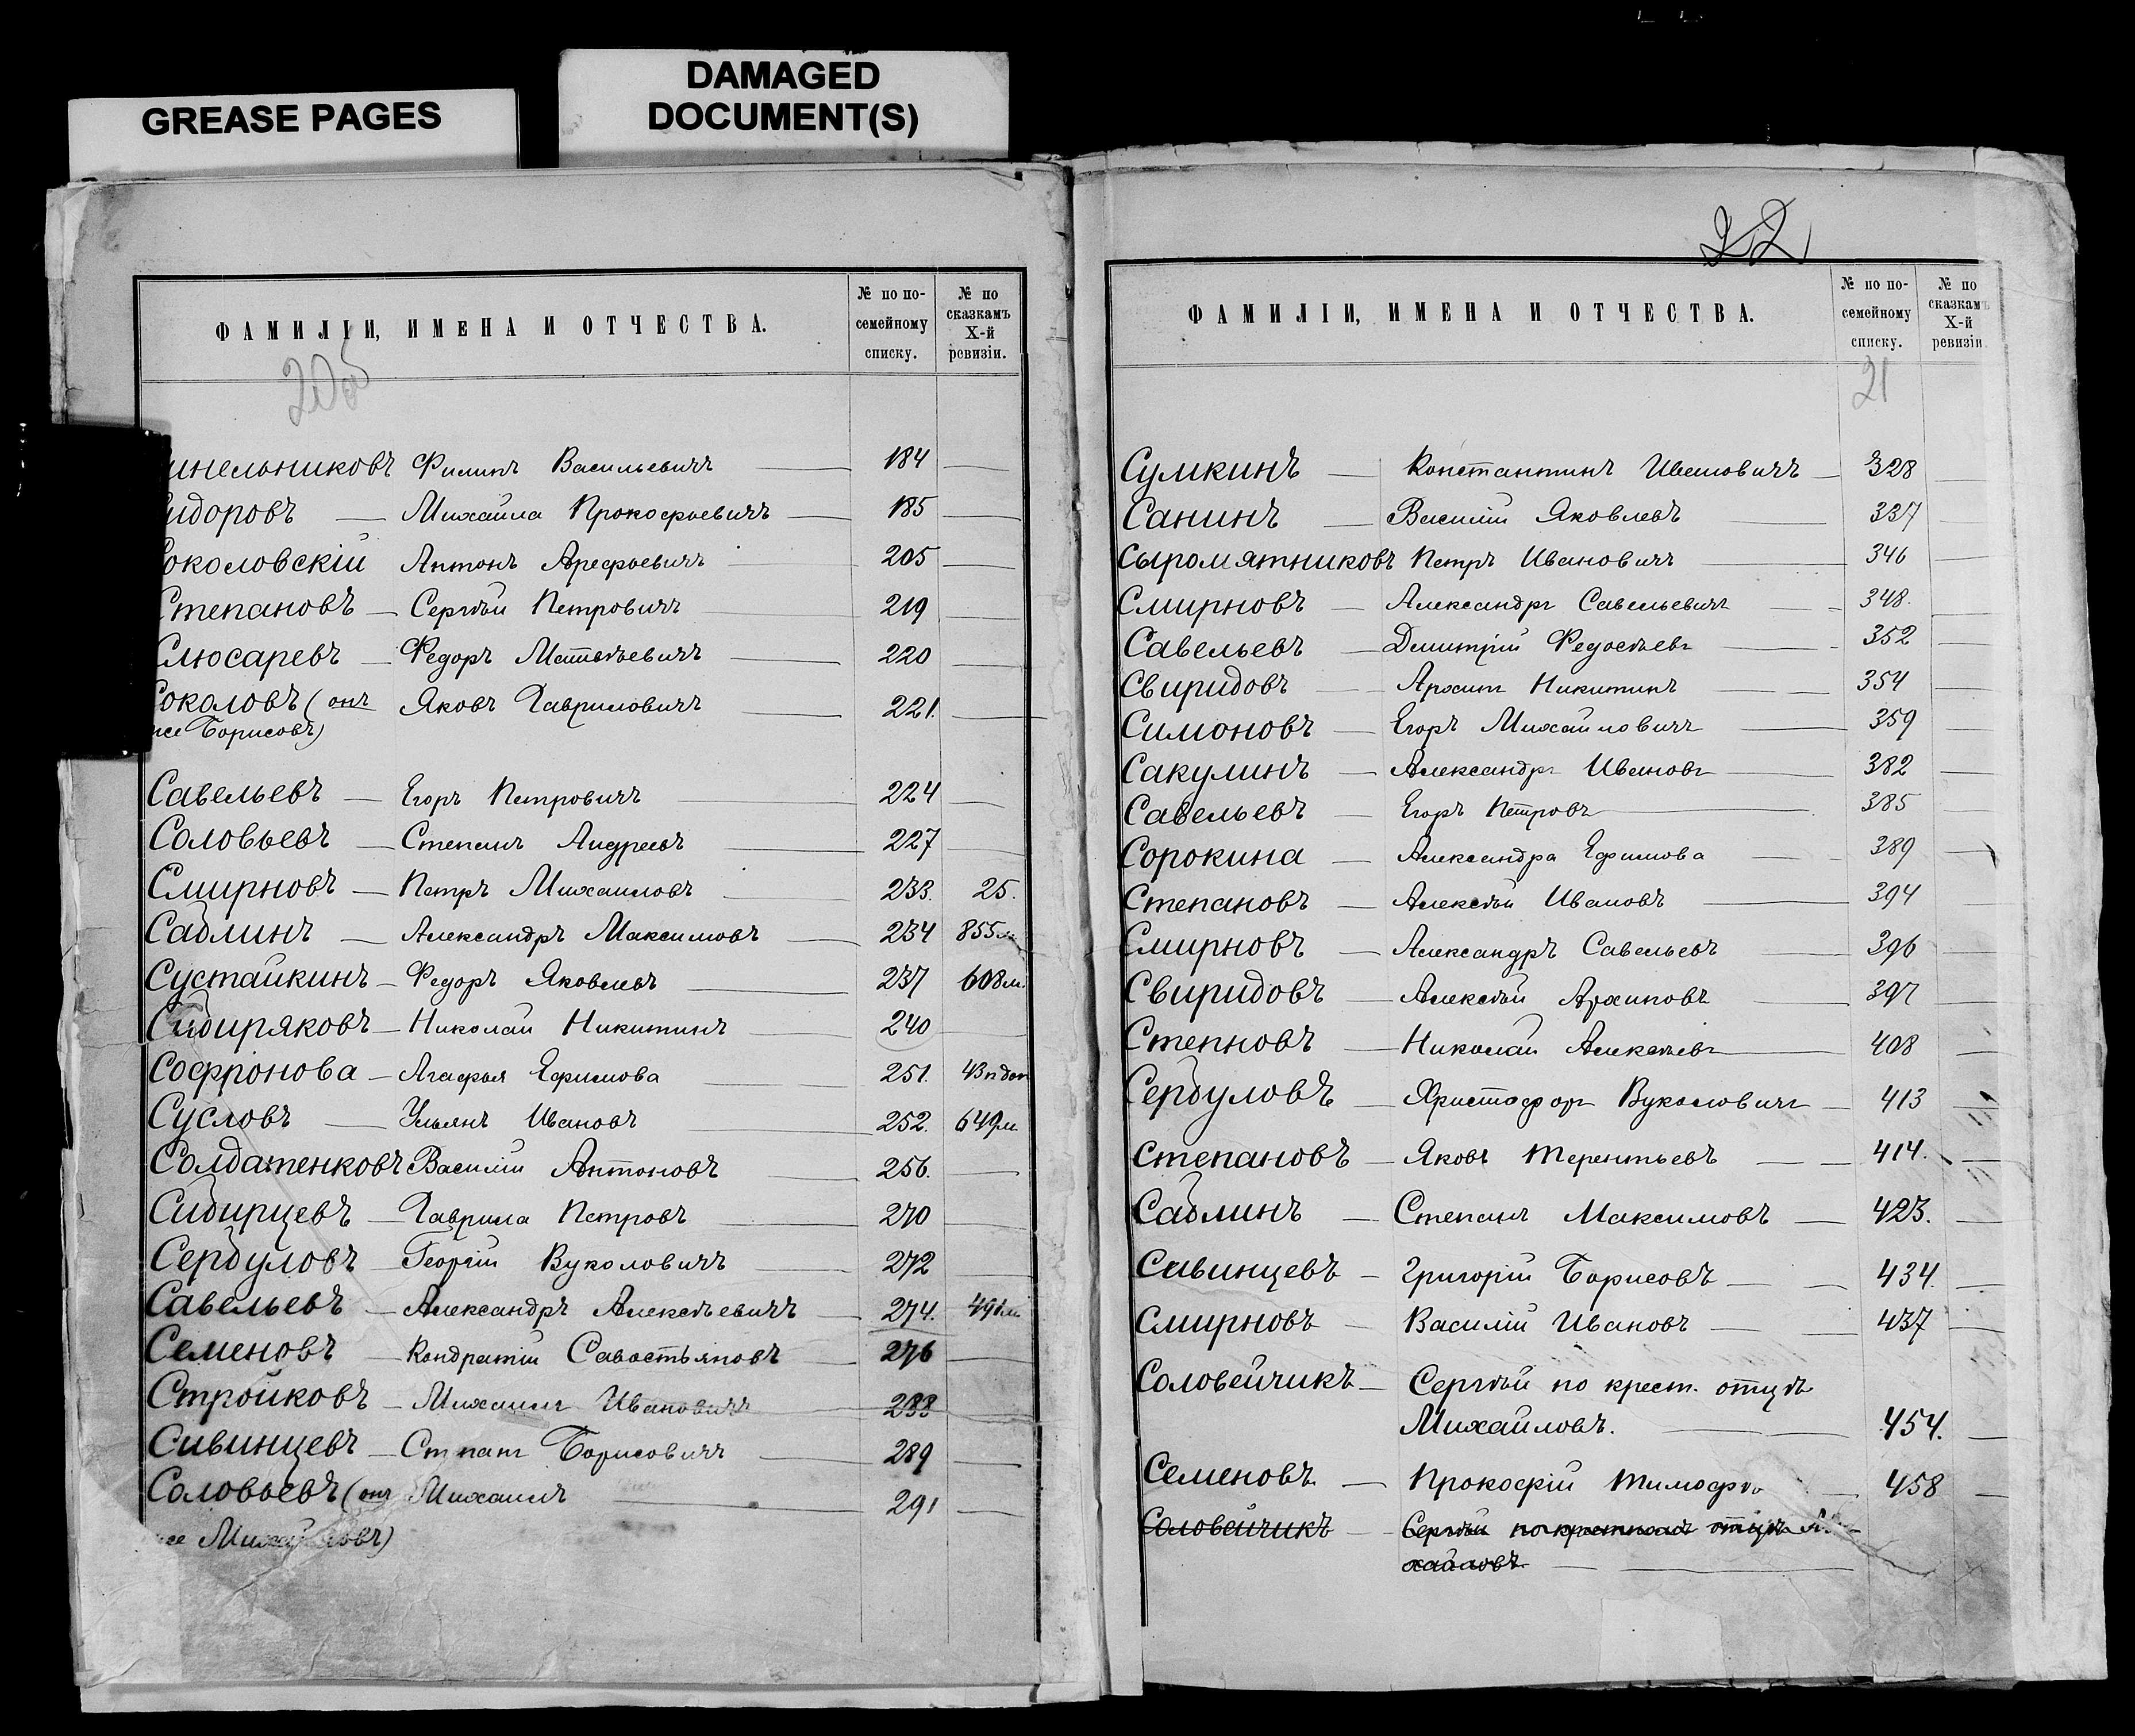 GREASE PAGES
DAMAGED
DOCUMENT(S)
ФАМИЛІИ, ИМЕНА И ОТЧЕСТВА.
№ по по-
семейному
списку.
№ по
сказкамъ
X-й
ревизіи.
20об
инельниковъ Филипъ Васильевичъ 184
идоровъ — Михайла Прокофьевичъ 185
Соколовскій Антонъ Арефьевичъ 205
Степановъ — Сергѣй Петровичъ 219
Слюсаревъ — Федоръ Матвѣевичъ 220
Соколовъ (онъ Яковъ Гавриловичъ 221.
же Борисовъ)
Савельевъ — Егоръ Петровичъ 224
Соловьевъ — Степанъ Андреевъ 227
Смирновъ — Петръ Михаиловъ 233. 25.
Саблинъ — Александръ Максимовъ 234 855м
Сустайкинъ — Федоръ Яковлевъ 237 608м.
Сибиряковъ — Николай Никитинъ 240
Софронова — Агафья Ефимова 251. 43 п доп
Сусловъ — Ульянъ Ивановъ 252. 649м.
Солдатенковъ Василій Антоновъ 256.
Сибирцевъ — Гаврила Петровъ 270
Сербуловъ — Георгій Вуколовичъ 272
Савельевъ — Александръ Алексѣевичъ 274. 491м
Семеновъ — Кондратій Савостьяновъ 276
Стройковъ — Михаилъ Ивановичъ 288
Сивинцевъ — Степанъ Борисовичъ 289
Соловьевъ (онъ Михаилъ 291
же Михайловъ)
22
ФАМИЛІИ, ИМЕНА И ОТЧЕСТВА.
№ по по-
семейному
списку.
№ по
сказкамъ
X-й
ревизіи.
21
Сумкинъ — Константинъ Ивановичъ — 328
Санинъ — Василій Яковлевъ 337
Сыромятниковъ Петръ Ивановичъ 346
Смирновъ — Александръ Савельевичъ 348.
Савельевъ — Дмитрій Федосѣевъ 352
Свиридовъ — Архипъ Никитинъ 354
Симоновъ — Егоръ Михайловичъ 359
Сакулинъ — Александръ Ивановъ 382
Савельевъ — Егоръ Петровъ 385
Сорокина — Александра Ефимова 389
Степановъ — Алексѣй Ивановъ 394
Смирновъ — Александръ Савельевъ 396
Свиридовъ — Алексѣй Архиповъ 397
Степновъ — Николай Алексѣевъ 408
Сербуловъ — Христофоръ Вуколовичъ — 413
Степановъ — Яковъ Терентьевъ 414.
Саблинъ — Степанъ Максимовъ — 423.
Сивинцевъ — Григорій Борисовъ 434.
Смирновъ — Василій Ивановъ 437
Соловейчикъ — Сергѣй по крест. отцѣ
Михайловъ. 454.
Семеновъ — Прокофій Тимофѣ 458
Соловейчикъ — Сергѣй по крестному отцѣ Ми-
хайловъ